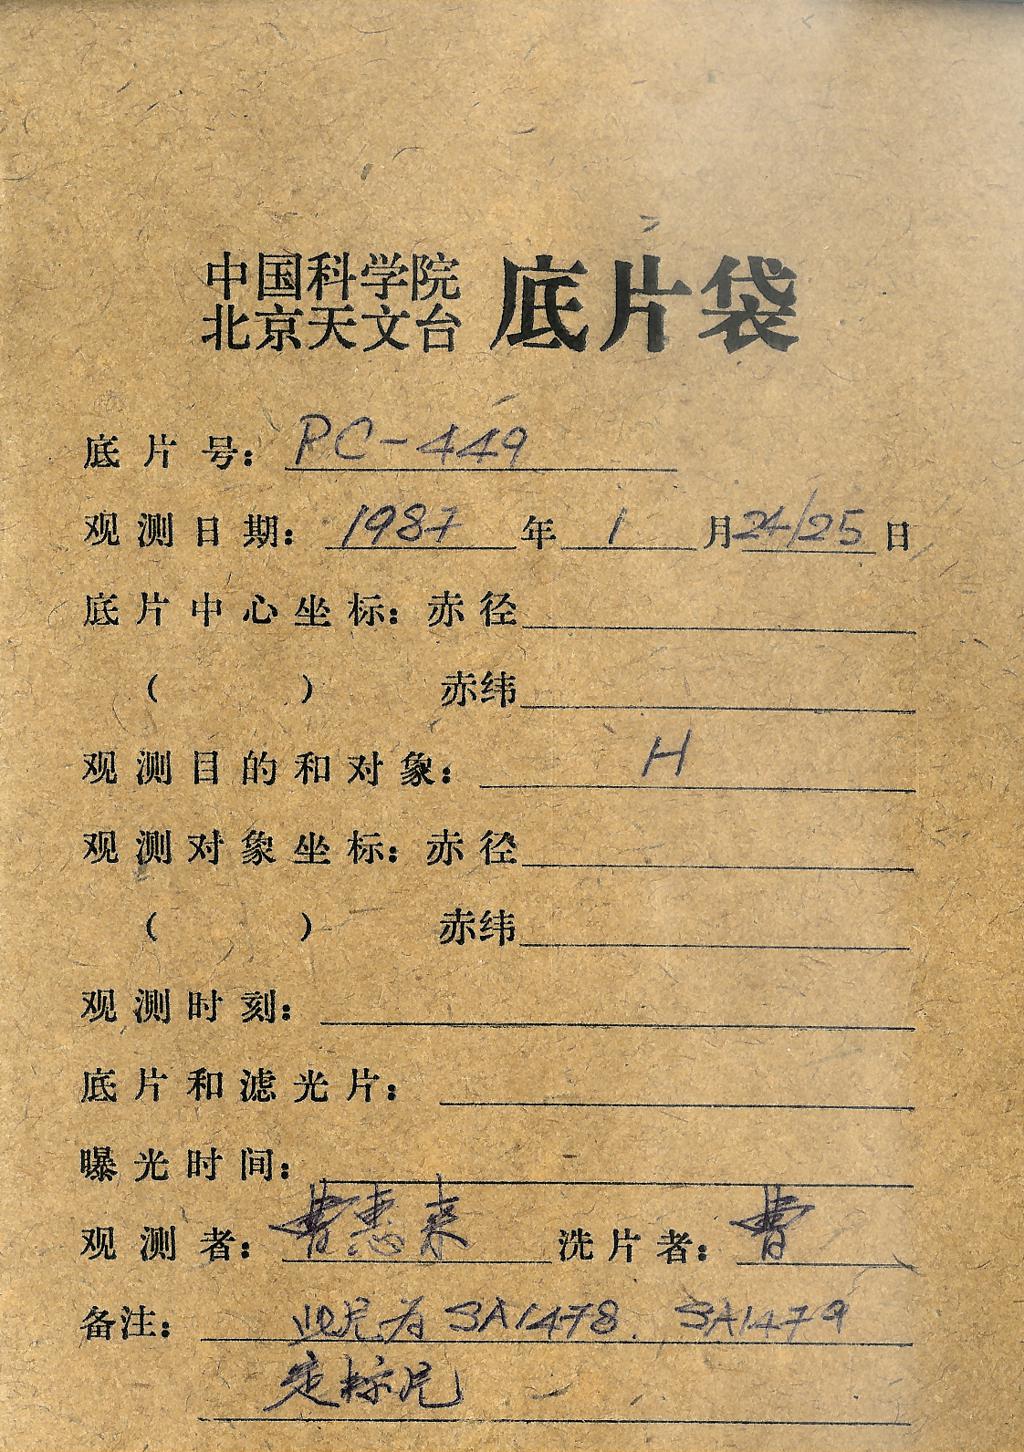 中国科学院
北京天文台 底片袋
底片号：PC-449
观测日期：1987年1月24/25日
底片中心坐标：赤径
（ ） 赤纬
观测目的和对象：H
观测对象坐标：赤径
（ ） 赤纬
观测时刻：
底片和滤光片：
曝光时间：
观测者：曹惠来 洗片者：曹
备注：此片为SA1478、SA1479
定标片